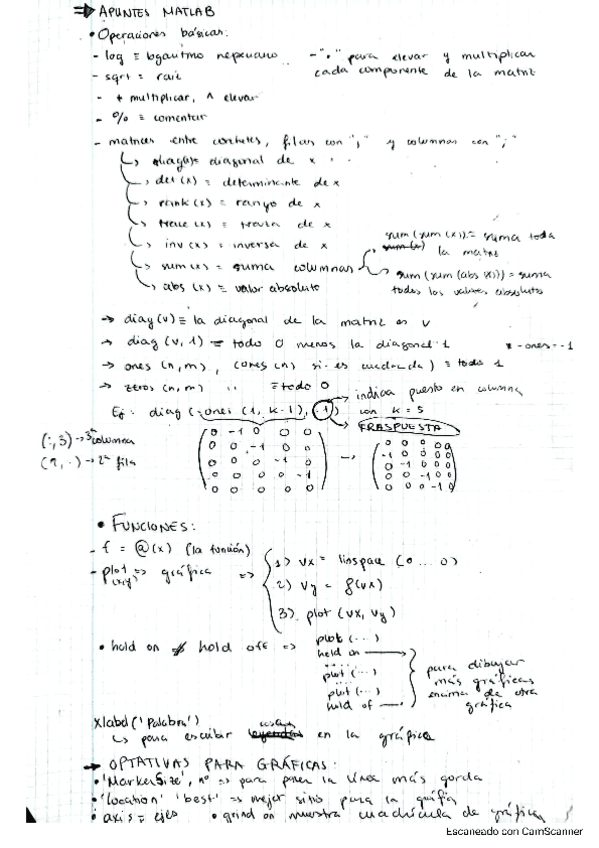 ⇒ APUNTES MATLAB
• Operaciones básicas:
- log ≡ logaritmo neperiano - "." para elevar y multiplicar
- sqrt = raiz cada componente de la matriz
- * multiplicar, ^ elevar
- % ≡ comentar
- matrices entre corchetes, filas con "," y columnas con ";"
↳ diag(x)= diagonal de x
↳ det(x) = determinante de x
↳ rank(x) = rango de x
↳ trace(x) = traza de x
↳ inv(x) = inversa de x
↳ sum(x) = suma columnas
↳ abs(x) = valor absoluto
sum(sum(x)) = suma toda
la matriz
sum(sum(abs(x))) = suma
todos los valores absolutos
→ diag(v) = la diagonal de la matriz es v
→ diag(v,1) = todo 0 menos la diagonal 1 * -ones=-1
→ ones(n,m), (ones(n) si es cuadrada) = todo 1
→ zeros(n,m) '' = todo 0
→ indica puesto en columna
Ej: diag(-ones(1,k-1), 1) con k=5
→ TRASPUESTA
(:,3) → 3ª columna
(2,:) → 2ª fila
0 -1 0 0 0
0 0 -1 0 0
0 0 0 -1 0
0 0 0 0 -1
0 0 0 0 0
→
0 0 0 0 0
-1 0 0 0 0
0 -1 0 0 0
0 0 -1 0 0
0 0 0 -1 0
• FUNCIONES:
- f = @(x) (la función)
- plot(x,y) => gráfica =>
1) vx = linspace(0...0)
2) vy = f(vx)
3) plot(vx, vy)
• hold on y hold off =>
plot(...)
hold on
.....
plot(...)
plot(...)
hold of
para dibujar
más gráficas
encima de otra
gráfica
xlabel('Palabra')
↳ para escribir cosas en la gráfica
→ OPTATIVAS PARA GRÁFICAS:
• 'MarkerSize', nº => para poner la línea más gorda
• 'location' 'best' => mejor sitio para la gráfia
• axis = ejes • grind on muestra cuadrícula de gráfica
Escaneado con CamScanner